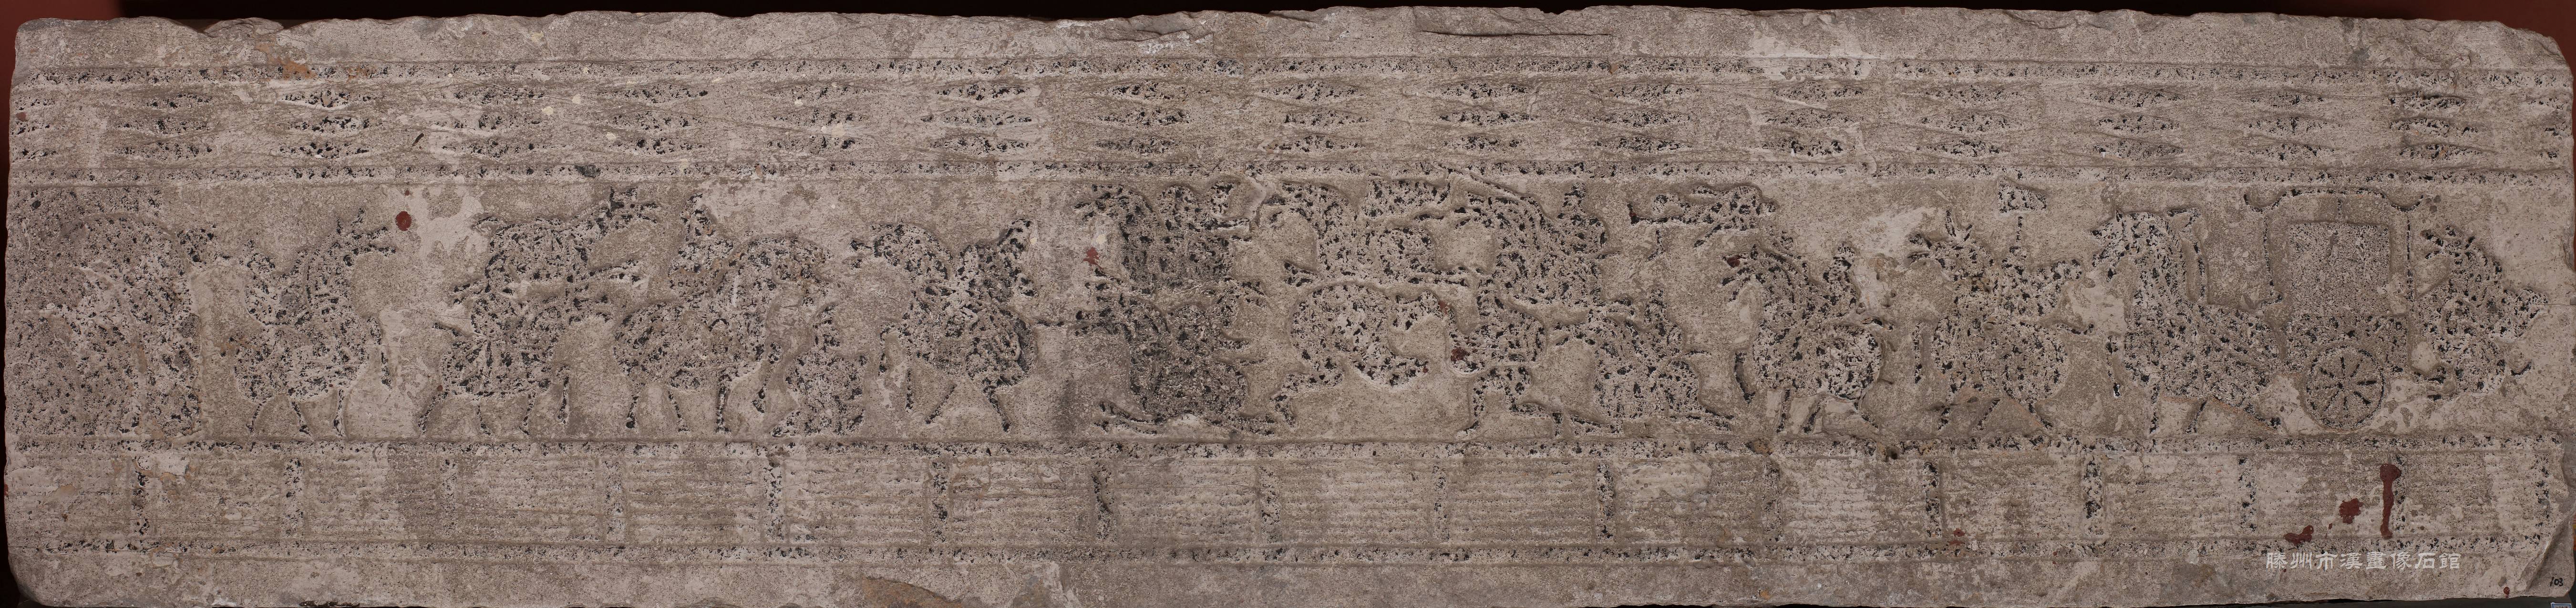 滕州市漢畫像石館
103